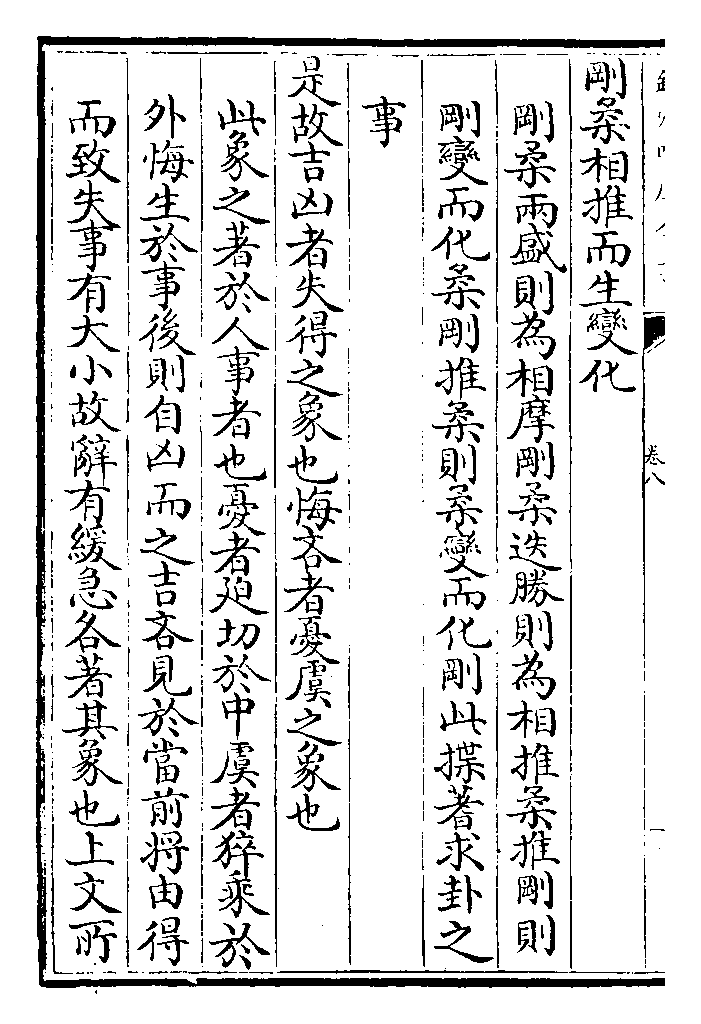 卷八
剛柔相推而生變化
剛柔兩盛則為相摩剛柔迭勝則為相推柔推剛則
剛變而化柔剛推柔則柔變而化剛此揲蓍求卦之
事
是故吉凶者失得之象也悔吝者憂虞之象也
此象之著於人事者也憂者廹切於中虞者猝乘於
外悔生於事後則自凶而之吉吝見於當前將由得
而致失事有大小故辭有緩急各著其象也上文所